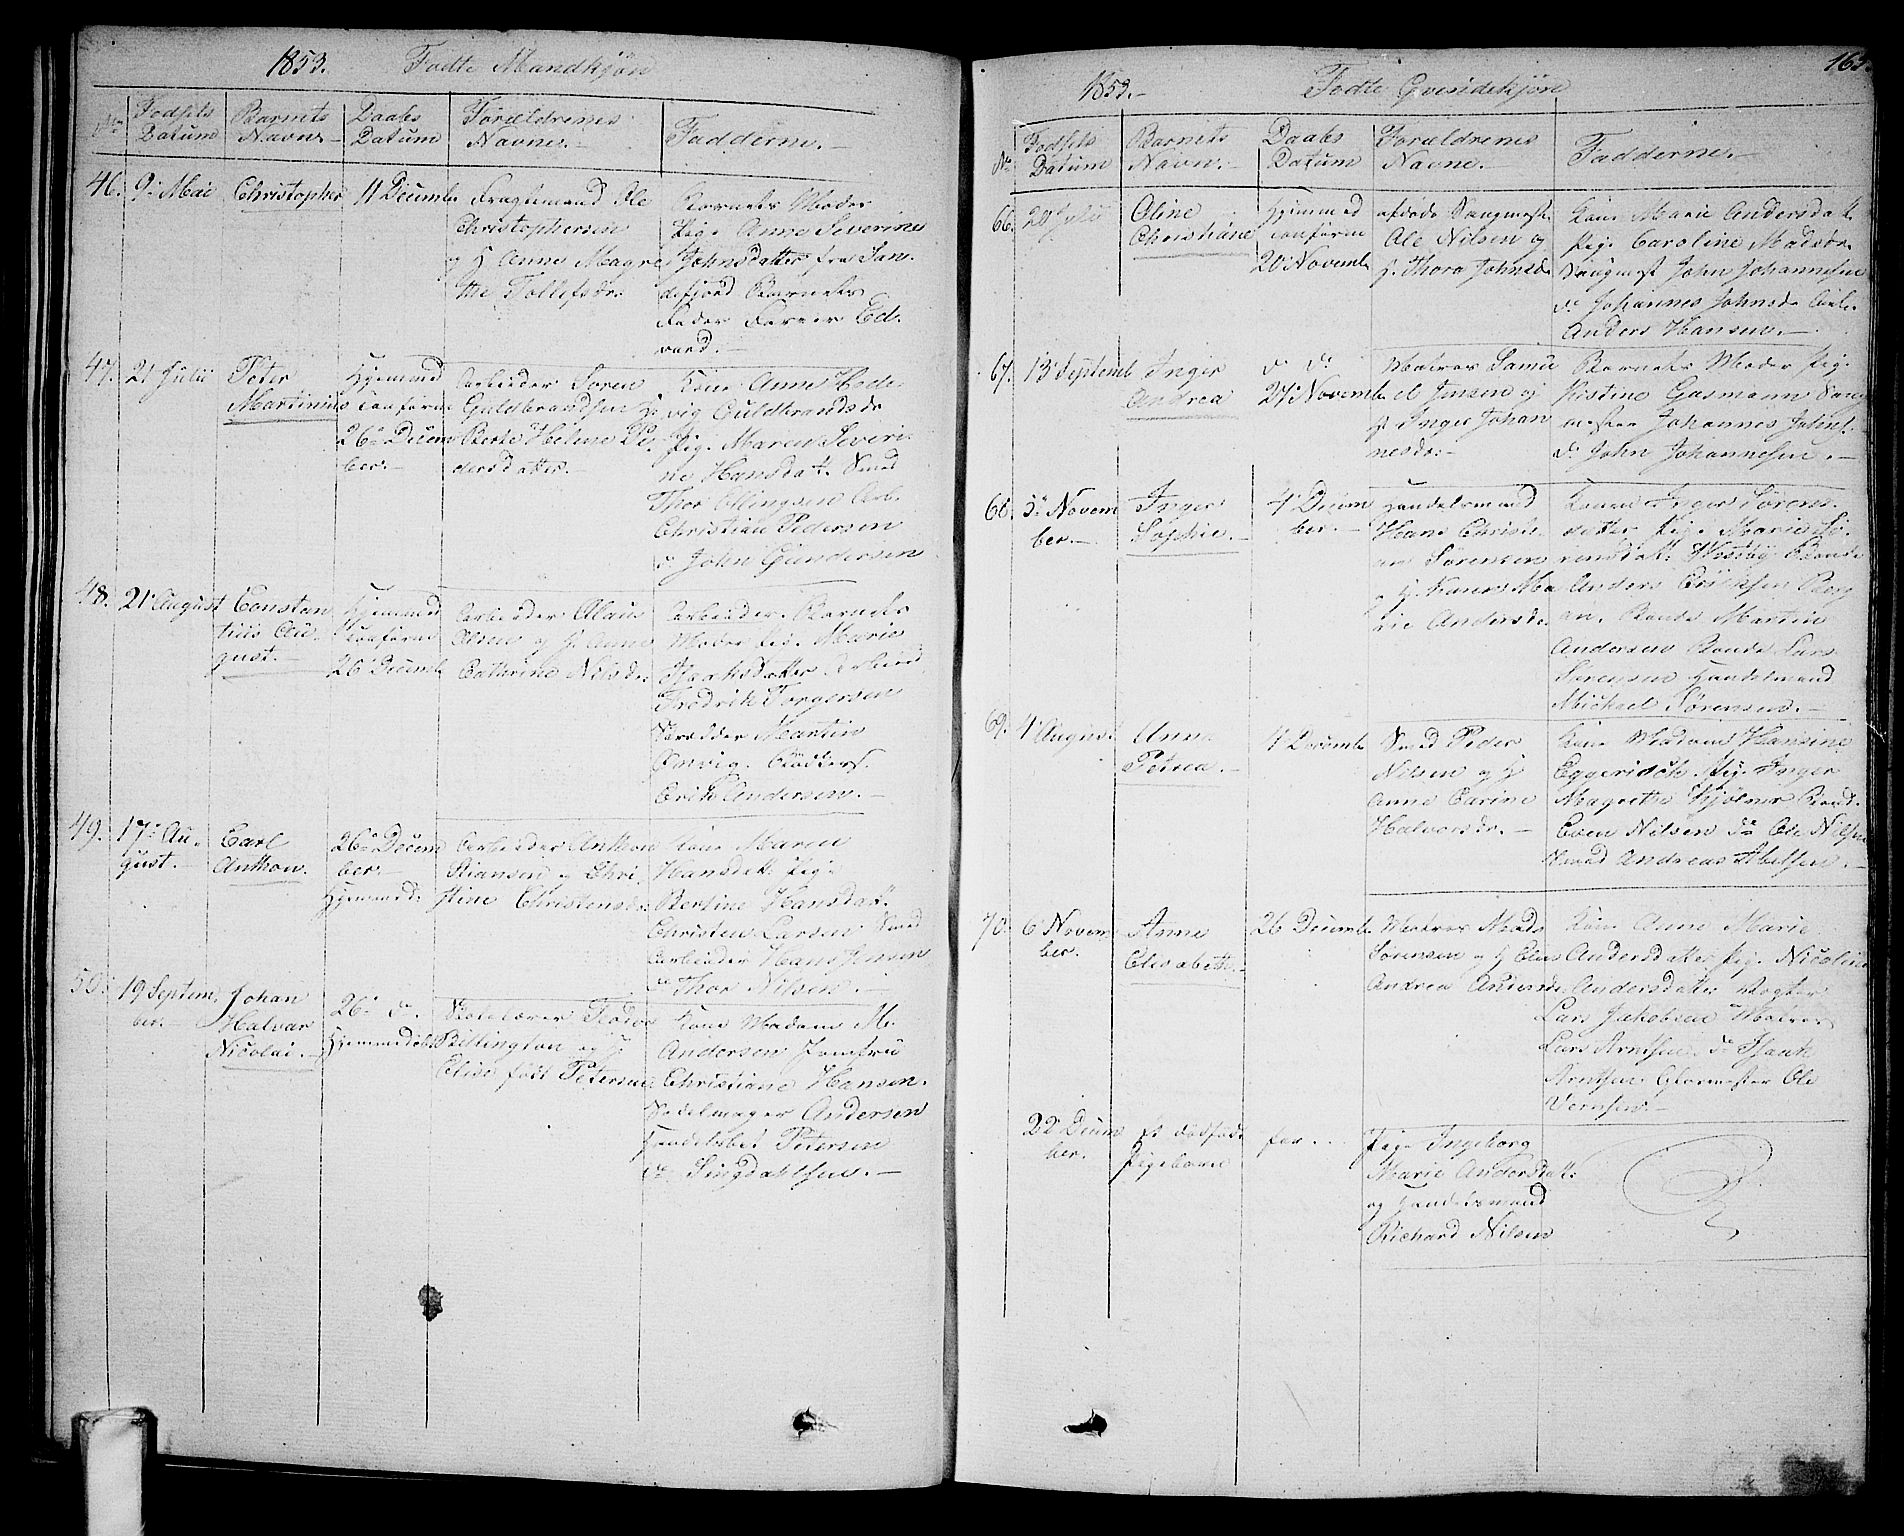 1853. Fødte Mandkjøn
No Fødsels Datum Barnets Navne Daabs Datum Forældrenes Navne. Fadderne.
46. 9. Mai Christopher 11 Decembe
Ole
Christophersen
og H Anne Magre
the Tollefsdr.
Barnets Moder
Pige Anne Severine
Johnsdatter fra San
defjord Barnets
Fader Ed
vard.
47. 21 Julii Peter
Martinius
Hjemmed
26 Decem
ber.
Arbeider Søren
Guldbrandsen H
Berte Helene Pe
dersdatter.
Kone Anne Hed
vig Guldbrandsdr
Pig. Maren Severi
ne Hansdat. Smed
Thor Ellingsen Arb.
Christian Pedersen
do John Gundersen
48. 21 August Constan
tius Au
gust.
Hjemmed
26 Decemb
Arbeider Olaus
Olsen og H. Anne
Cathrine Nilsdr.
Barnets
Moder Pig. Marie
Isaksdatter Arbeid
Fredrik Torgersen
Skrædder Martin
Erik Andersen.
49. 17 Au
gust.
Carl
Anthon.
26 Decem
ber.
Hjemmed.
Arbeider Anthon
Kiansen og Chri
stine Christensdr.
Kone Maren
Hansdatt. Pig.
Bertine Hansdatt.
Christen Larsen Smed
Arbeider Hans Jensen
do Thor Nilsen.
50. 19 Septem
ber.
Johan
Halvar
Nicolai.
26 d.
Hjemmedøbt
Skolelærer Fredor
Billington og H
Elise født Petersen
Kone Madam M.
Andersen Jomfru
Christiane Hansen.
Sadelmager Andersen
Petersen
do Singdahlsen.
165.
1853. Fødte Qvindekjøn
No Fødsels Datum Barnets Navn. Daabs Datum Forældrenes Navne. Fadderne.
66. 20 Julii Oline
Christiane
Hjemmed
20 Novemb
afdøde Sangmest.
Ole Nilsen og
H. Thora Johnsdr
Kone Marie Andersdatt.
Pig. Caroline Madsdr.
Sangmest John Johannesen
do Johannes Johnsdr
Anders Hansen.
67. 13 Septemb Inger
Andrea
do do
27 Novemb
Matros Samu
el Jensen og
H Inger Johan
nesdr.
Barnets Moder Pig.
Kistine Gasmann Sang
mester Johannes Johns.
do John Johannesen.
68. 3 Novem
ber.
Inger
Sophie.
4 Decem
ber.
Handelsmand
Hans Christi
an Sørensen
og H. Karen Ma
rie Andersdr.
Konen Inger Sørens
datter Pig. Marie Sø
rensdatt. Westby Bonde
Anders Eriksen Berg
an. Bonde Martin
Andersen Bonde Lars
Sørensen Handelsmand
Michael Sørensen.
69. 4 August Anne
Petrea.
4 Decemb
Smed Peder
Nilsen og H
Anne Carine
Halvorsdr.
Kone Madam Hansine
Pig. Inger
Magrethe Kjølner
Even Nilsen do Ole Nilsen
Smed Andreas Abelsen.
70. 6 Novem
ber.
Anne
Elisabeth.
26 Decemb
Matros Mads
Sørensen og H Elias
Andrea Andersdr.
Kone Anne Marie
Andersdatter Pig. Nicoline
Andersdatter
Lars Jakobsen Matros
Lars Arntsen. do Isaak
Arntsen. Glarmester Ole
Vernsen.
22 Decem
ber.
et dødfødt
Pigebarn
Pige Ingeborg
Marie Andersdatt.
og Handelsmand
Richard Nilsen